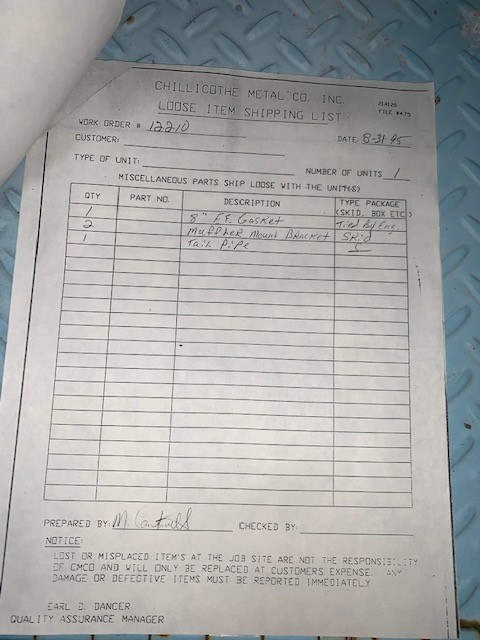 CHILLICOTHE METAL CO. INC.
LOOSE ITEM SHIPPING LIST
FILE #475
WORK ORDER # 12210
DATE: 8-31-95
CUSTOMER:
TYPE OF UNIT:
NUMBER OF UNITS 1
MISCELLANEOUS PARTS SHIP LOOSE WITH THE UNIT(S)
QTY PART NO. DESCRIPTION TYPE PACKAGE (SKID, BOX ETC.)
1 8" F.F. Gasket Tied By Eng.
2 Muffler Mount Bracket Skid
1 Tail Pipe
PREPARED BY: M. CHECKED BY:
NOTICE:
LOST OR MISPLACED ITEM'S AT THE JOB SITE ARE NOT THE RESPONSIBILITY
OF CMCO AND WILL ONLY BE REPLACED AT CUSTOMERS EXPENSE. ANY
DAMAGE OR DEFECTIVE ITEMS MUST BE REPORTED IMMEDIATELY
EARL D. DANCER
QUALITY ASSURANCE MANAGER